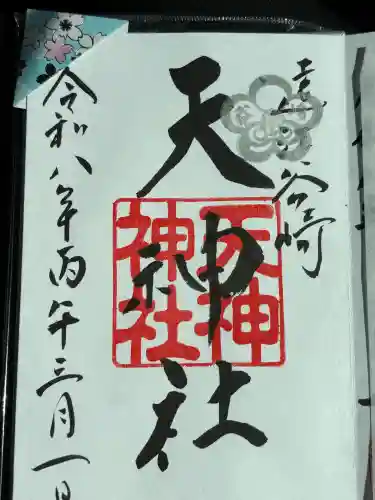 幸谷崎
天神社
天神
神社
令和八年丙午三月一日